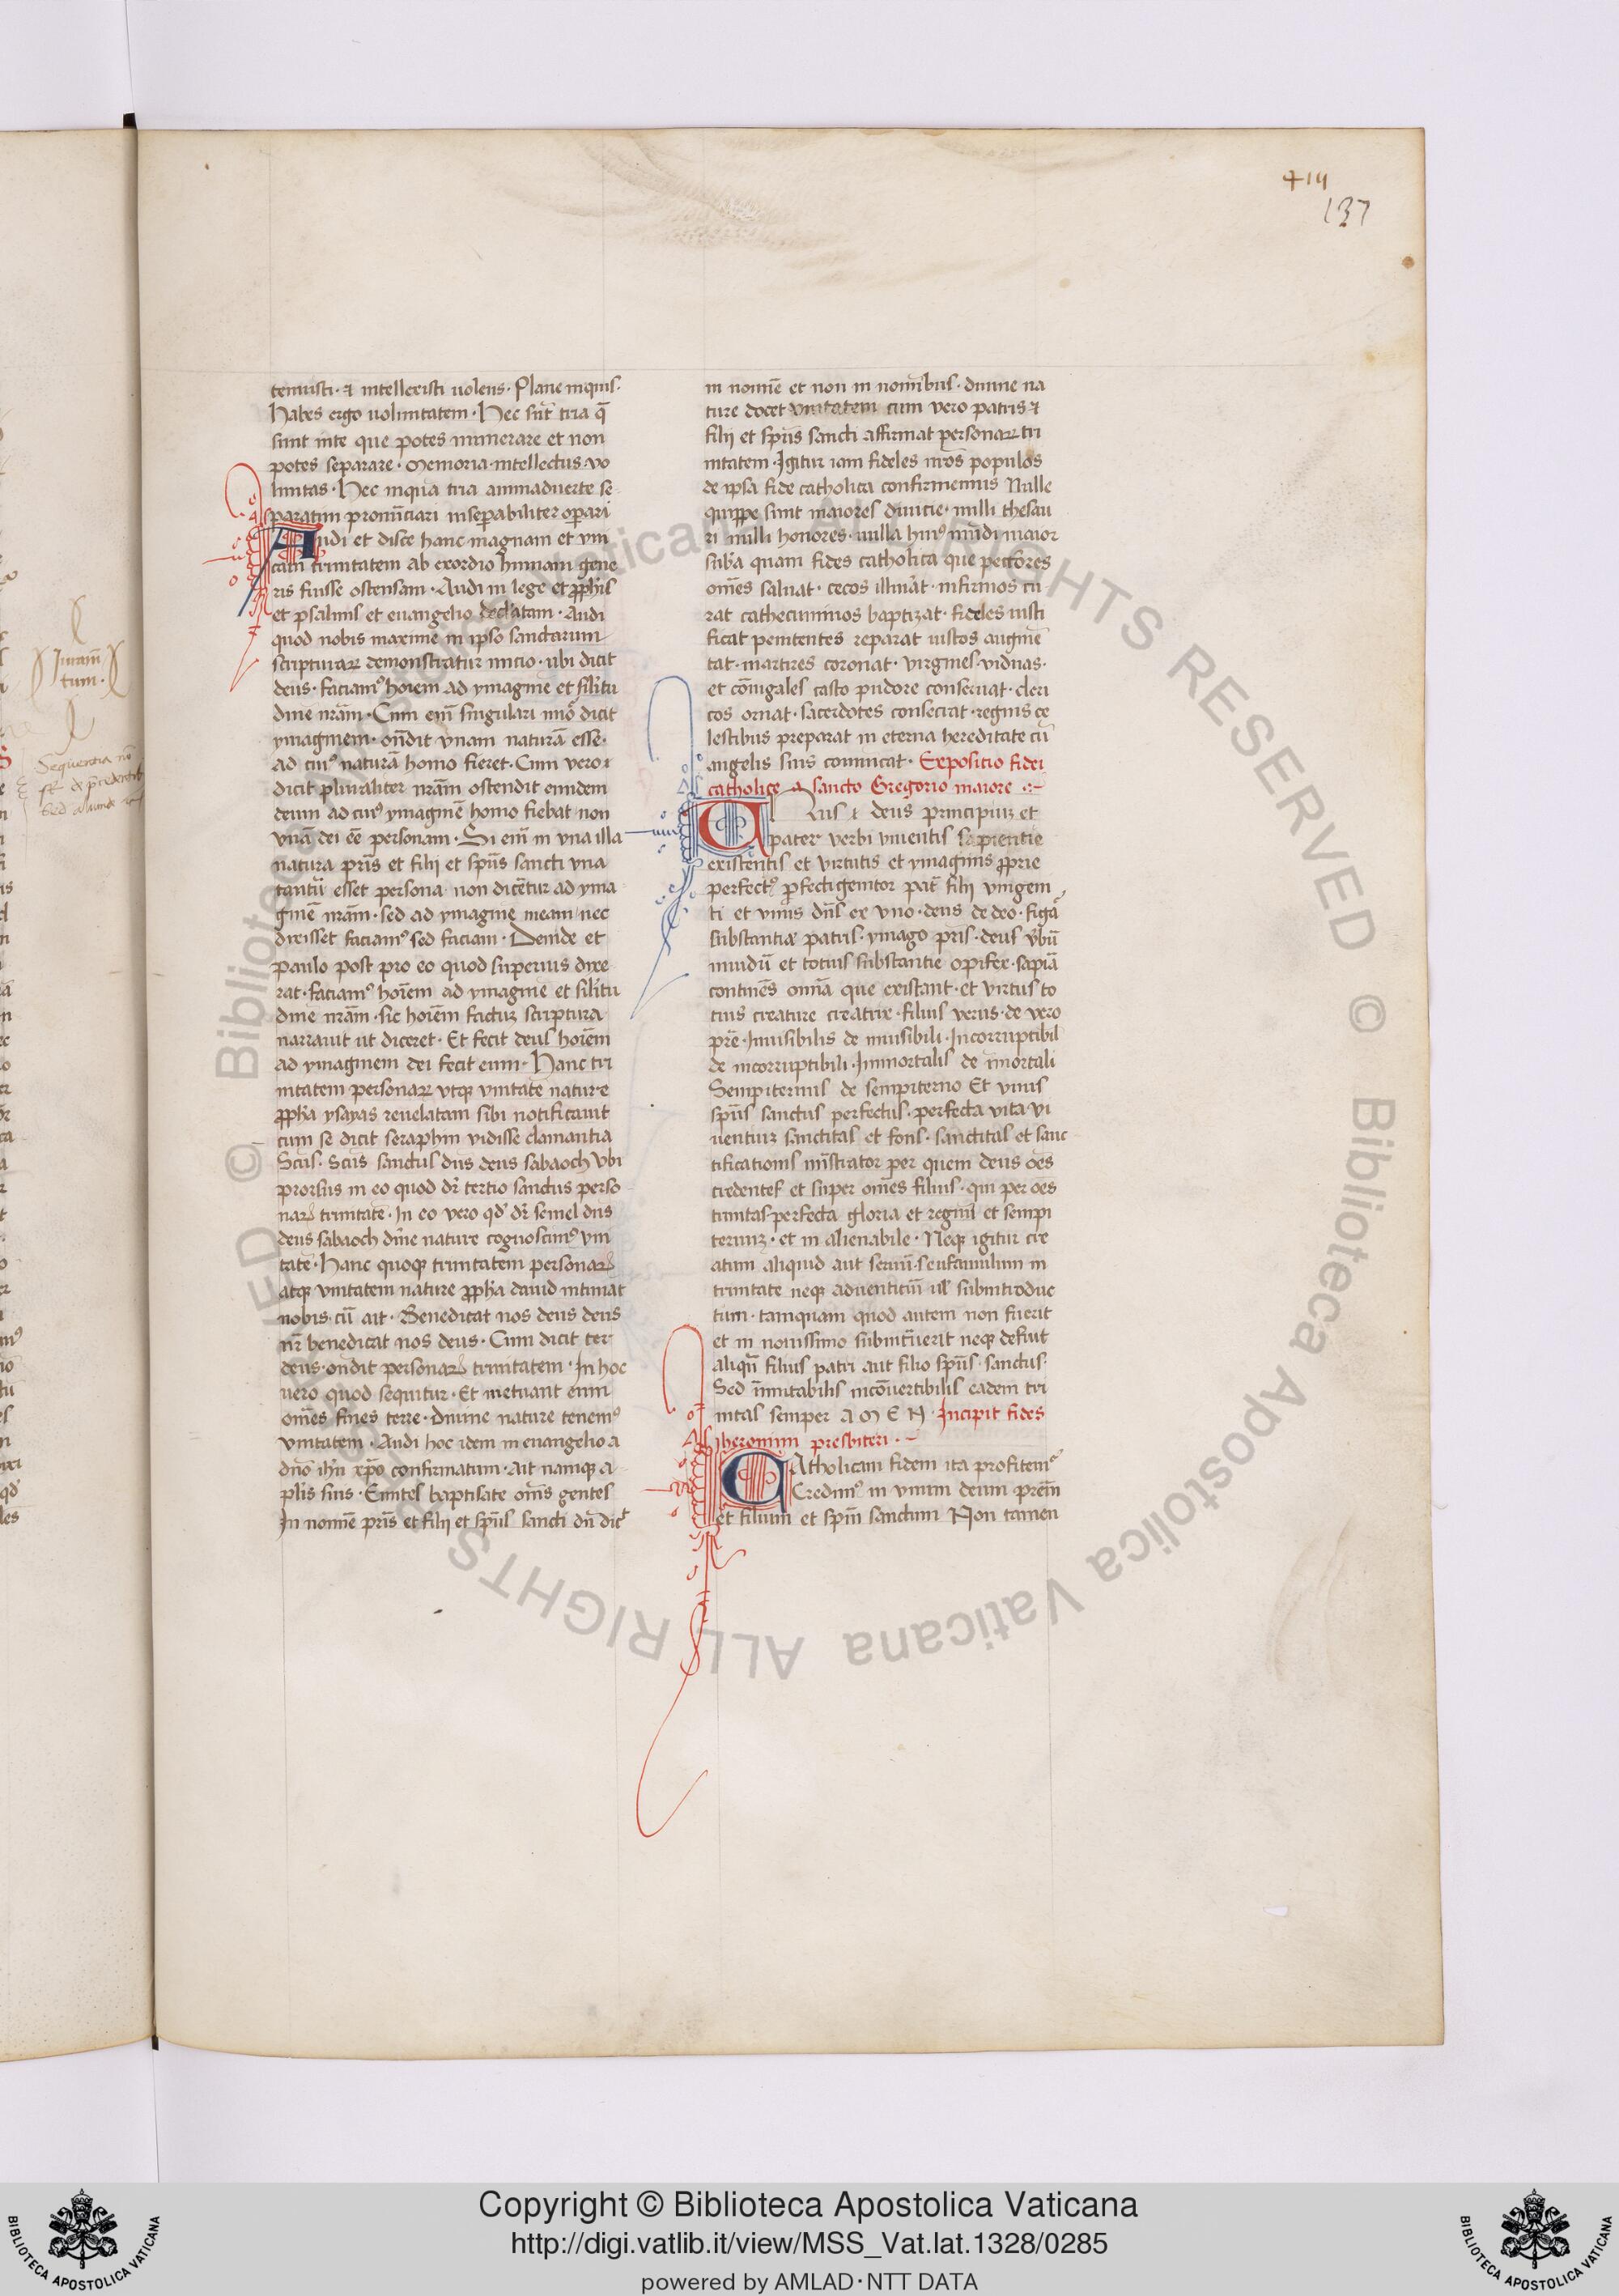 414
137
Juram̄
tum.
Sequentia nō
tenuisti · et intellexisti uolens · Plane inquis ·
habes ergo uoluntatem · Hec sūt tria q̄
sunt in te que potes numerare et non
potes separare · memoria · intellectus · vo
luntas · Hec inquā tria animaduerte se
paratim pronūciari inseperabiliter operari
Audi et disce hanc magnam et vni
cam trinitatem ab exordio humani gene
ris fuisse ostensam · Audi in lege et ꝓphīs
et psalmis et euangelio declatam · Audi
quod nobis maxime in ipso sanctarum
scripturaꝝ demonstratur inicio · ubi dicit
deus · faciamꝰ hoīem ad ymaginē et silitu
dinē nr̄am · Cum eni͞ singulari nu͞o dicit
ymaginem · on̄dit vnam naturā esse ·
ad cuiꝰ naturā homo fieret · Cum vero
dicit pluraliter nr̄am ostendit eundem
deum ad cuiꝰ ymaginē homo fiebat non
vnā dei eē personam · Si eni͞ in vna illa
natura pr̄is et filij et spūs sancti vna
tantū esset persona non dicētur ad yma
ginē nr̄am · sed ad ymaginē meam nec
dixisset faciamꝰ sed faciam · Deinde et
paulo post pro eo quod superius dixe
rat · faciamꝰ hoīem ad ymaginē et silitu
dinē nr̄am · sic hoīem factuꝫ scriptura
narrauit ut diceret · Et fecit deus hoīem
ad ymaginem dei fecit eum · Hanc tri
nitatem personaꝝ vtqꝫ vnitatē nature
ꝓpha ysayas reuelatam sibi notificauit
cum se dicit seraphin vidisse clamantia
Scūs · Scūs sanctus dn̄s deus sabaoch vbi
prorsus in eo quod dr̄ tertio sanctus perso
naꝝ trinitatē · In eo vero qd̄ dr̄ semel dn̄s
deus sabaoch diīne nature cognoscimꝰ vni
tatē · Hanc quoqꝫ trinitatem personaꝝ
atqꝫ vnitatem nature ꝓpha dauid intimat
nobis · cū ait · Benedicat nos deus deus
nr̄ benedicat nos deus · Cum dicit ter
deus · on̄dit personaꝝ trinitatem · In hoc
uero quod sequitur · Et metuant eum
om̄es fines terre · diuine nature tenemꝰ
vnitatem · Audi hoc idem in euangelio a
dn̄o ihū xp̄o confirmatum · Ait namqꝫ a
plīs suis · Euntes baptisate om̄s gentes
In nomē pr̄is et filij et spūs sancti dū dic̄
in nomē et non in nomībus · diuine na
ture docet vnitatem cum vero patris et
filij et spūs sancti affirmat personaꝝ tri
nitatem · Igitur iam fideles nr̄os populos
de ipsa fide catholica confirmemus Nulle
quippe sunt maiores diuitie · nulli thesau
ri nulli honores · nulla huiꝰ mūdi maior
suba quam fides catholica que peccores
om̄es saluat · cecos illuīat · infirmos cu
rat cathecuminos baptizat · fideles iusti
ficat penitentes reparat iustos augmē
tat · martires coronat · virgines · viduas ·
et cōiugales casto pudore conseruat · cleri
cos ornat · sacerdotes consecrat · regnis ce
lestibus preparat in eterna hereditate cū
angelis suis comūicat · Expositio fidei
catholice a sancto Gregorio maiore ·:~
Vnus ē deus principiuꝫ et
pater verbi viuentis sapientie
existentis et virtutis et ymaginis ꝓprie
perfectꝰ ꝑfecti genitor pat̄ filij vnigeni
ti et vnus dn̄s ex vno · deus de deo · figā
substantie patris · ymago pr̄is · deus v̄bū
mūdū et totius substantie opifex · sapiā
continēs om̄ia que existant · et virtus to
tius creature creatrix · filius verus · de vero
pr̄e · Inuisibilis de inuisibili · Incorruptibil
de incorruptibili · Immortalis de īmortali
Sempiternus de sempiterno Et vnus
spūs sanctus perfectus · perfecta vita vi
uentiuꝫ sanctitas et fons · sanctitas et sanc
tificationis mīstrator per quem deus oēs
credentes et super om̄es filius · qui per oēs
trinitas · perfecta gloria et regnū et sempi
ternuꝫ · et in alienabile · Neqꝫ igitur cre
atum aliquid aut seruū · seu famulum in
trinitate neqꝫ aduentitiū ul̄ subintroduc
tum · tamquam quod autem non fuerit
et in nouissimo subintūerit neqꝫ defiut
aliqn̄ filius patri aut filio spūs · sanctus ·
Sed īmutabilis incōuertibilis eadem tri
nitas semper A M E N · Incipit fides
iheronimi presbiteri · ~
CAtholicam fidem ita profitemꝰ
Credimꝰ in vnum deum pr̄em
et filium et spm̄ sanctum Non tamen
Copyright © Biblioteca Apostolica Vaticana
http://digi.vatlib.it/view/MSS_Vat.lat.1328/0285
powered by AMLAD·NTT DATA